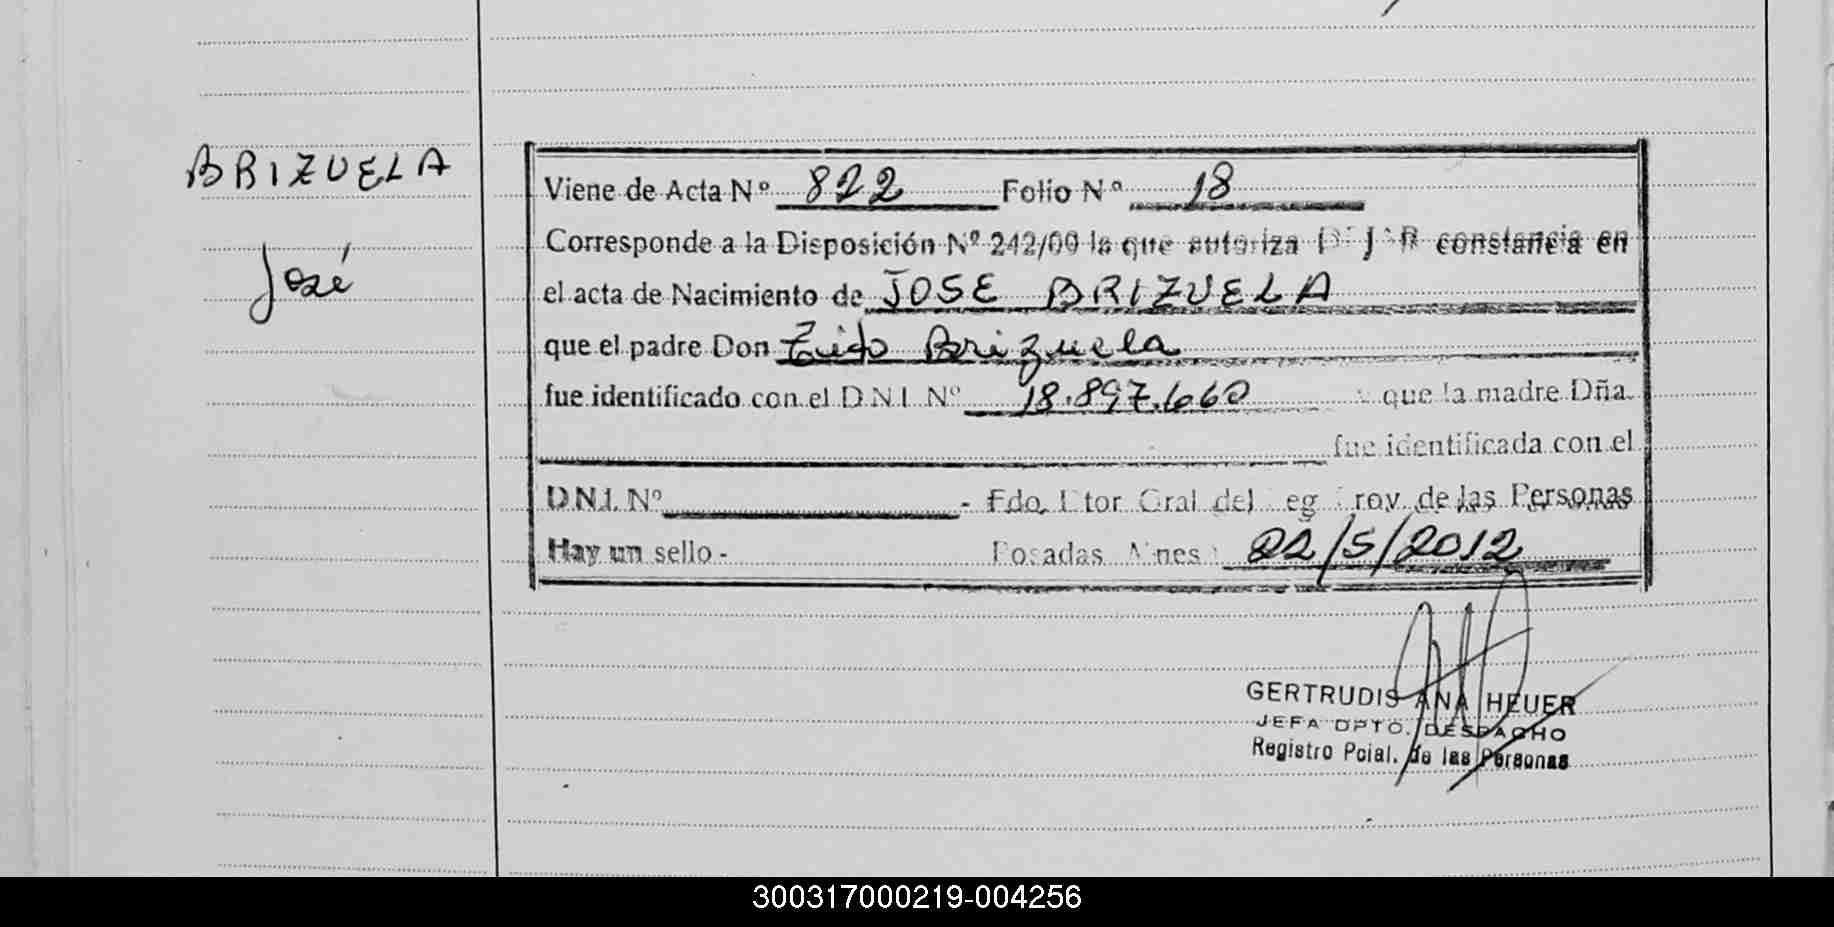 BRIZUELA
José
Viene de Acta Nº 822 Folio Nº 18
Corresponde a la Disposición Nº 242/00 la que autoriza DEJAR constancia en
el acta de Nacimiento de JOSE BRIZUELA
que el padre Don Brizuela
fue identificado con el D.N.I. Nº 18.897.660 que la madre Dña.
fue identificada con el
D.N.I. Nº - Fdo. Dtor Gral del Reg Prov de las Personas
Hay un sello - Posadas Mnes 22/5/2012
GERTRUDIS ANA HEUER
JEFA DPTO. DESPACHO
Registro Pcial. de las Personas
300317000219-004256